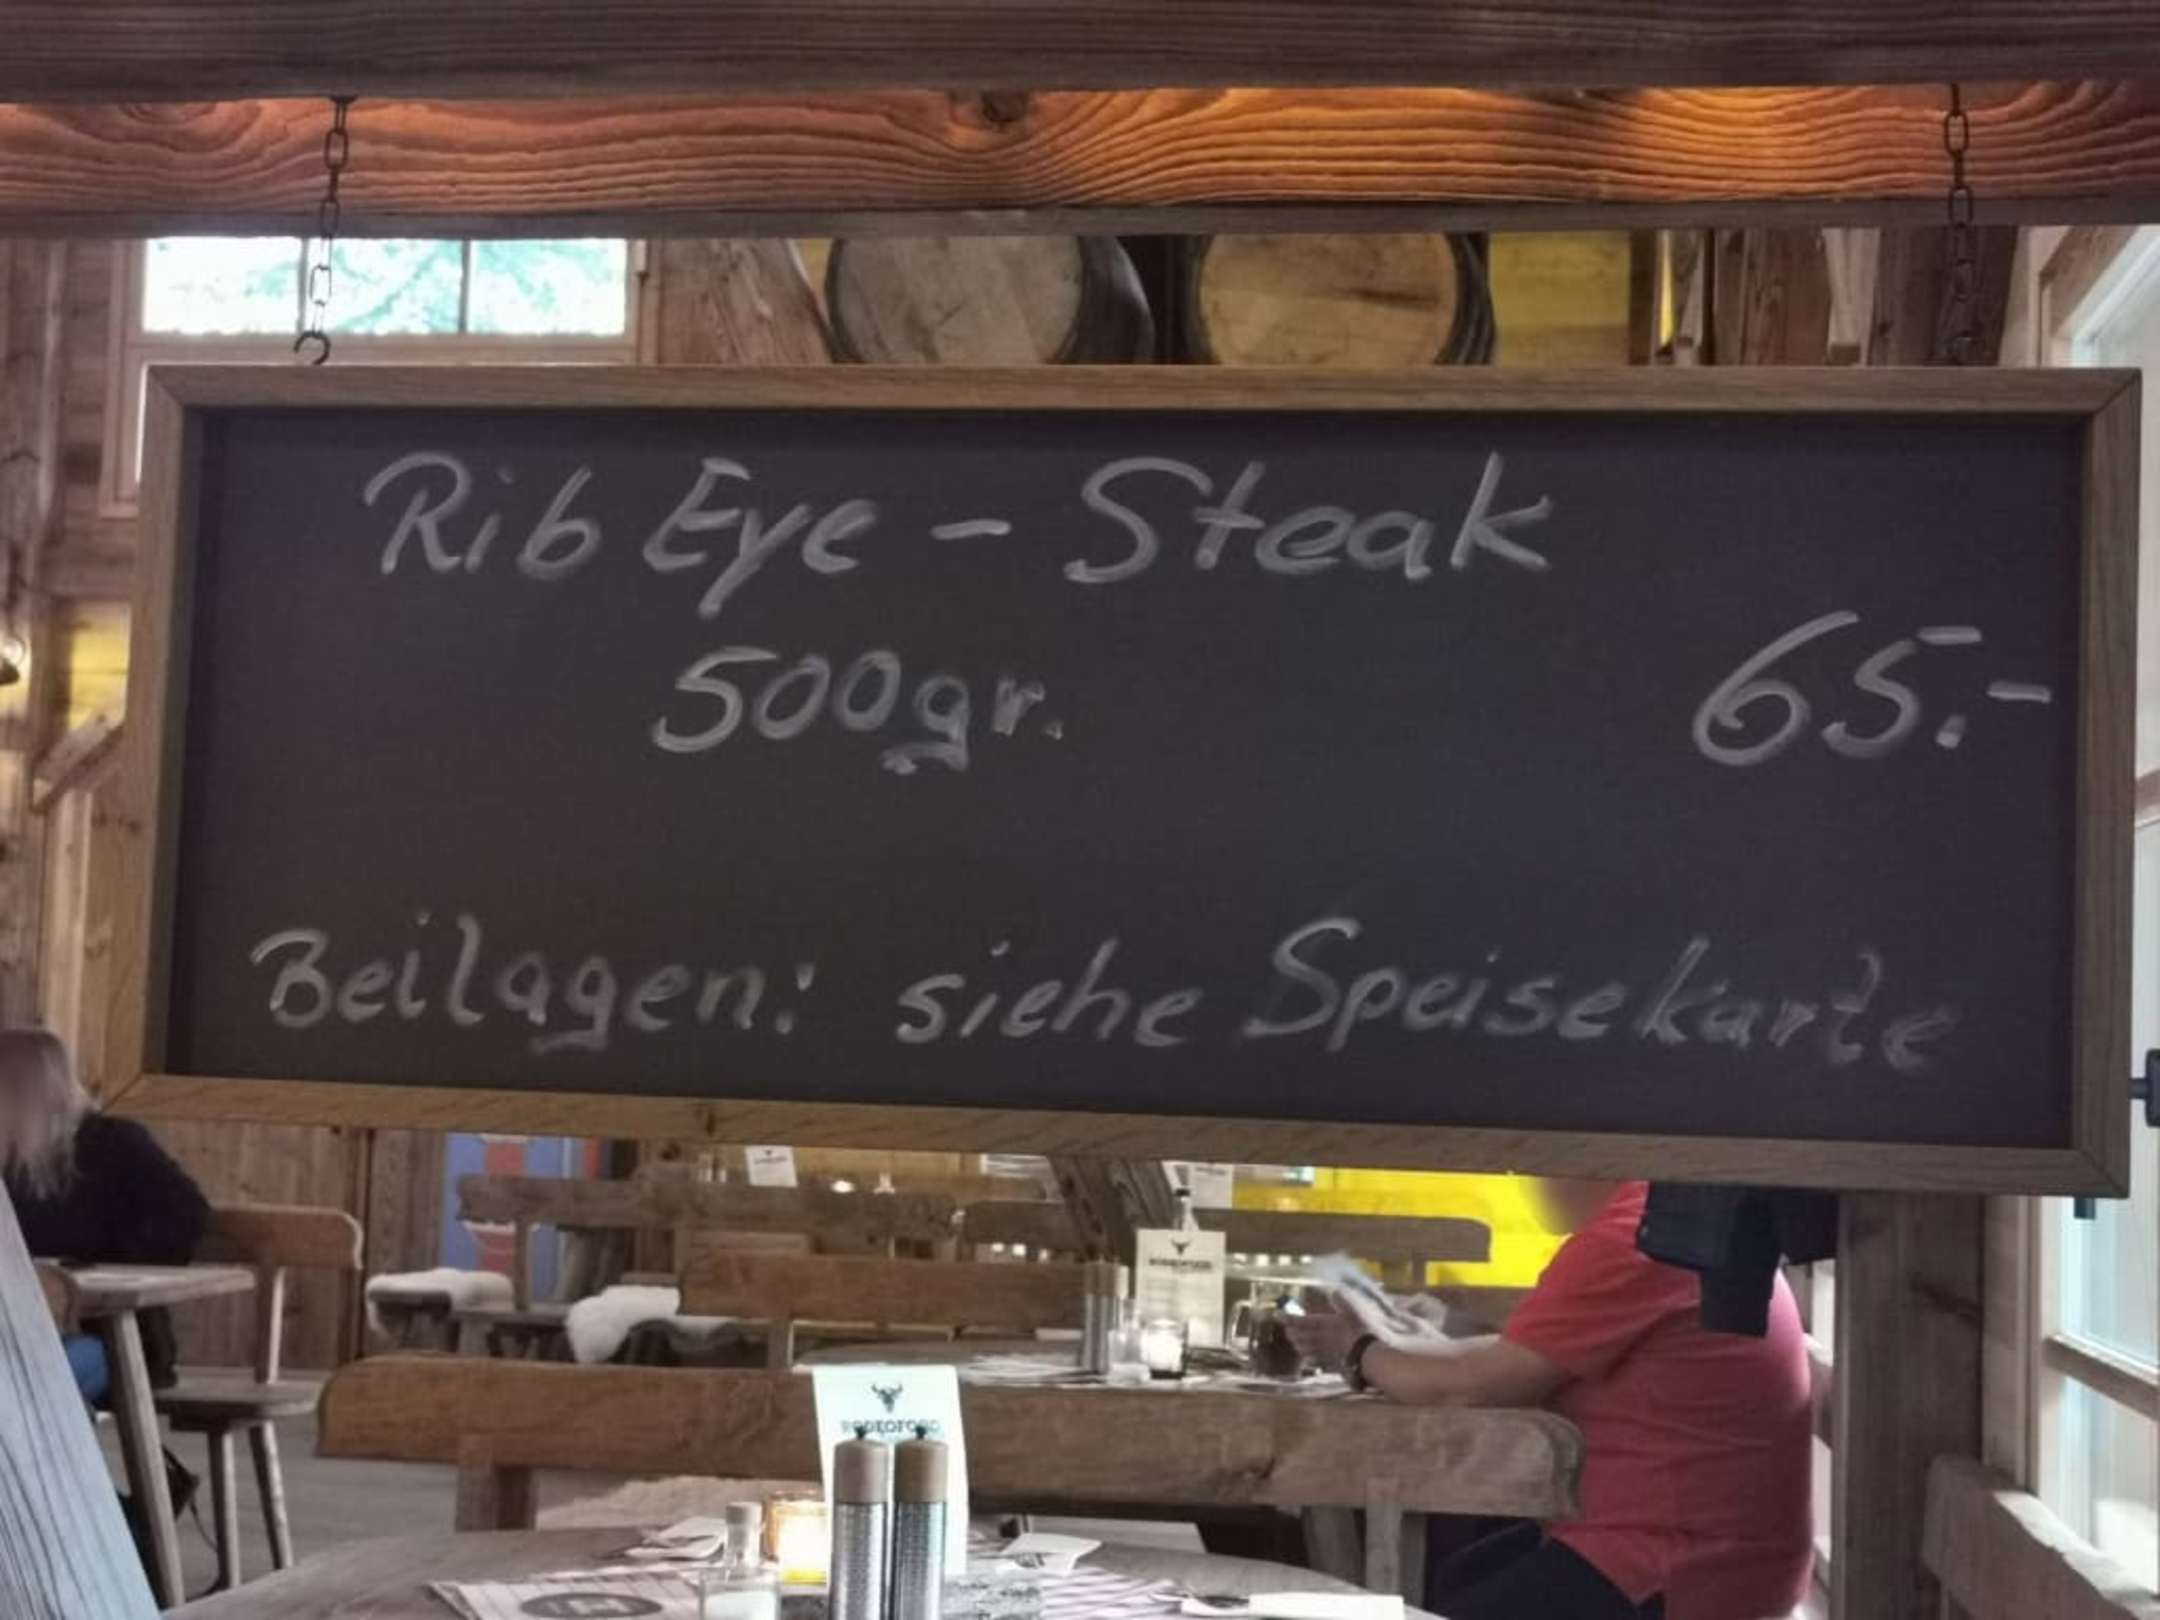 Rib Eye - Steak
500gr.
65.-
Beilagen: siehe Speisekarte